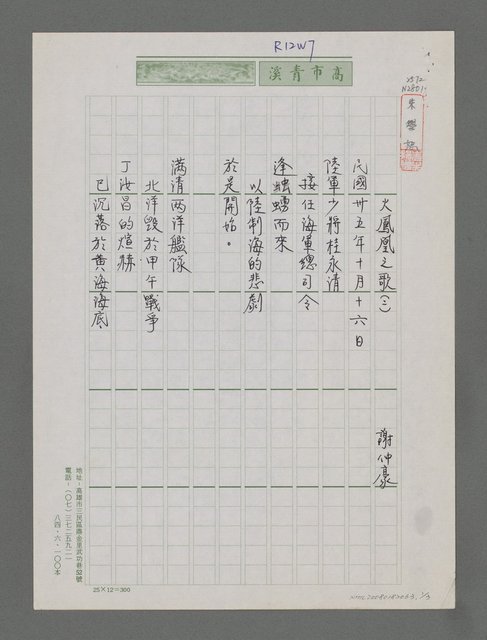 R12W7
高市青溪
2572
N2801
朱學恕
火鳳凰之歌(三)
謝仲豪
民國卅五年十月十六日
陸軍少將桂永清
接任海軍總司令
逢觸礁而來
以陸制海的悲劇
於是開始。
滿清两洋艦隊
北洋毀於甲午戰爭
丁汝昌的煊赫
已沉落於黄海海底
地址:高雄市三民區鼎金里武功巷52號
電話:(○七)三七二五九二一
八四.六.一○○本
25×12=300